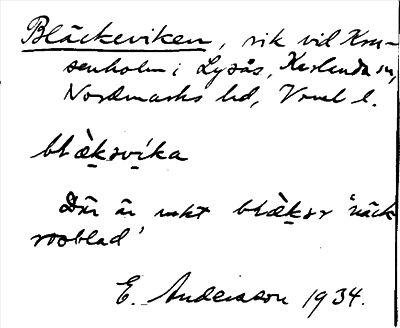 Bläckeviken, vik vid Kru-
senholm i Lysås, Karlanda sn,
Nordmarks hd, Vrml l.
blæ̀ḳṛvika
Där är mkt blæ̀ḳər 'näck-
rosblad'
E. Andersson 1934.